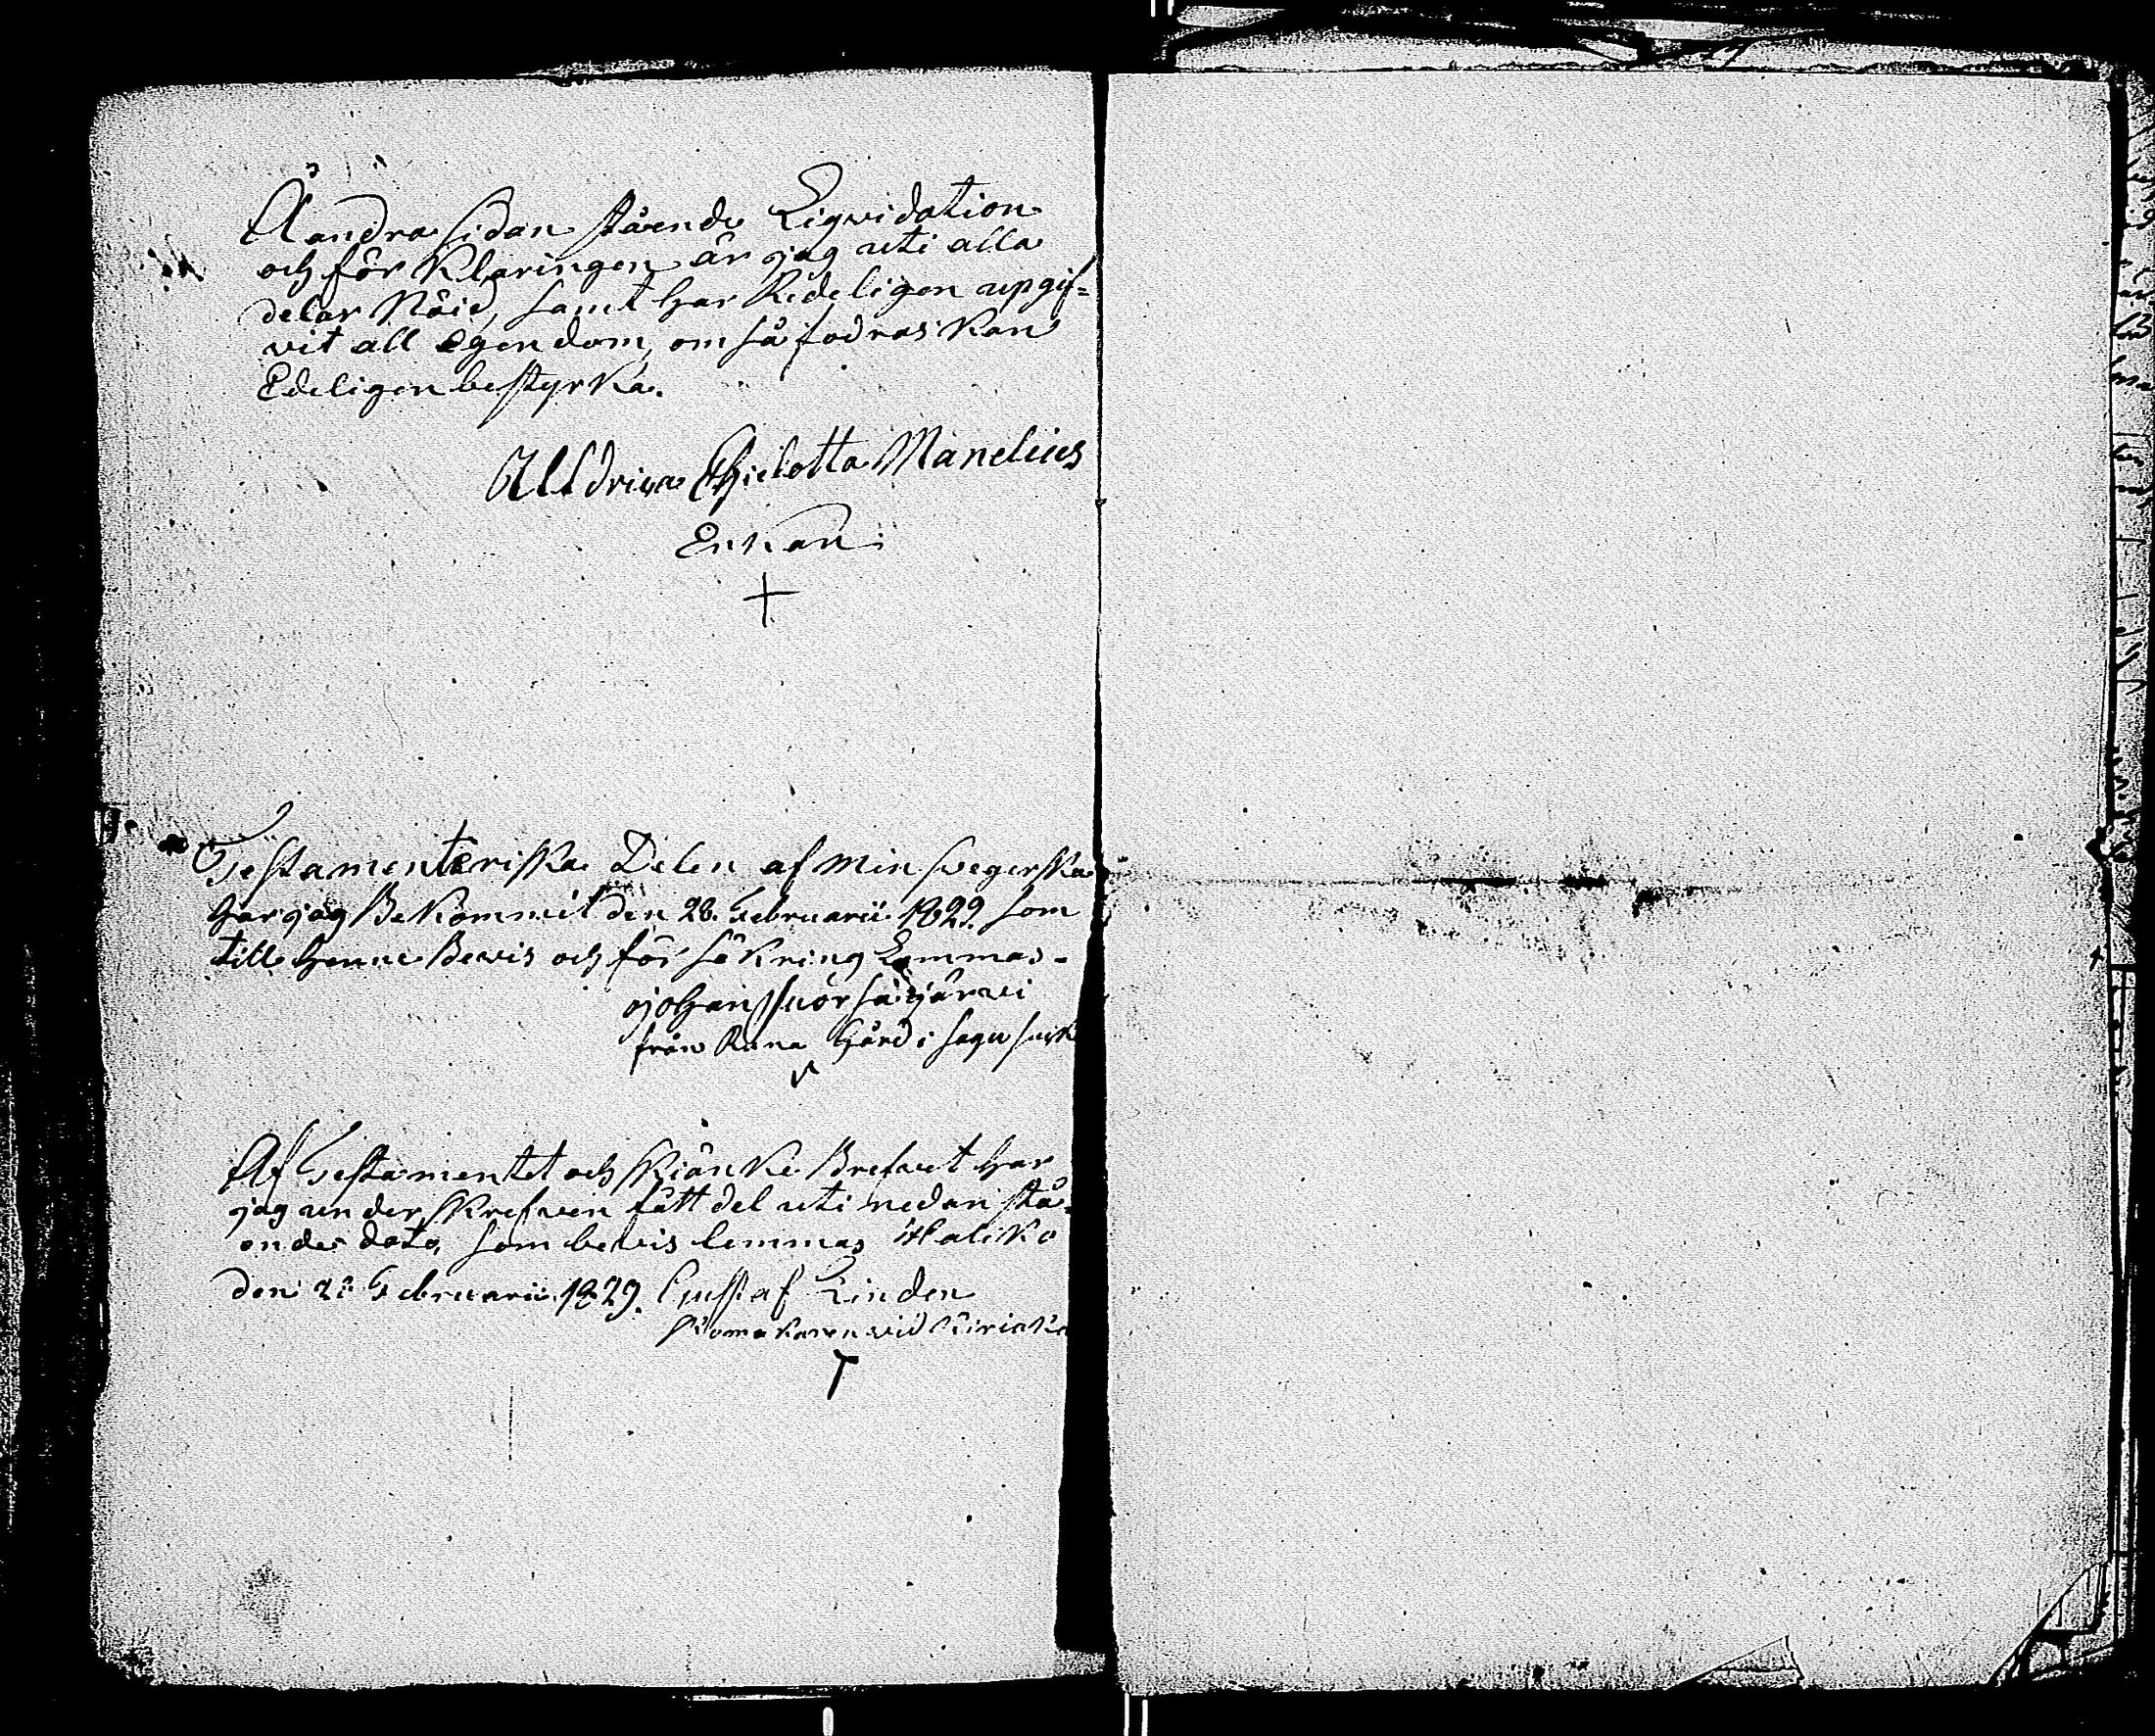 Å andra sidan stående Liqvidation
och för Klaringen är jag uti alla
delar Nöid, samt har Redeligen upgif=
vit all Egendom, om så fodras kan
Edeligen bestyrka.
Ulldrica Manelius
Enkan
+
Testamenteriska Delen af min svegerska
har jag Bekommit den 28. Februarii 1829. som
till henne Bevis och för säkring Lemmas -
johan Suorsajärvi
från Gård i Sagu
Af Testamentet och Skiänke Brefvet har
jag under skrefven fått del uti nedan stå=
ende dato, som bevis lemmas Haliko
den Februarii 1829. Gustaf Linden
Skomakaren vid